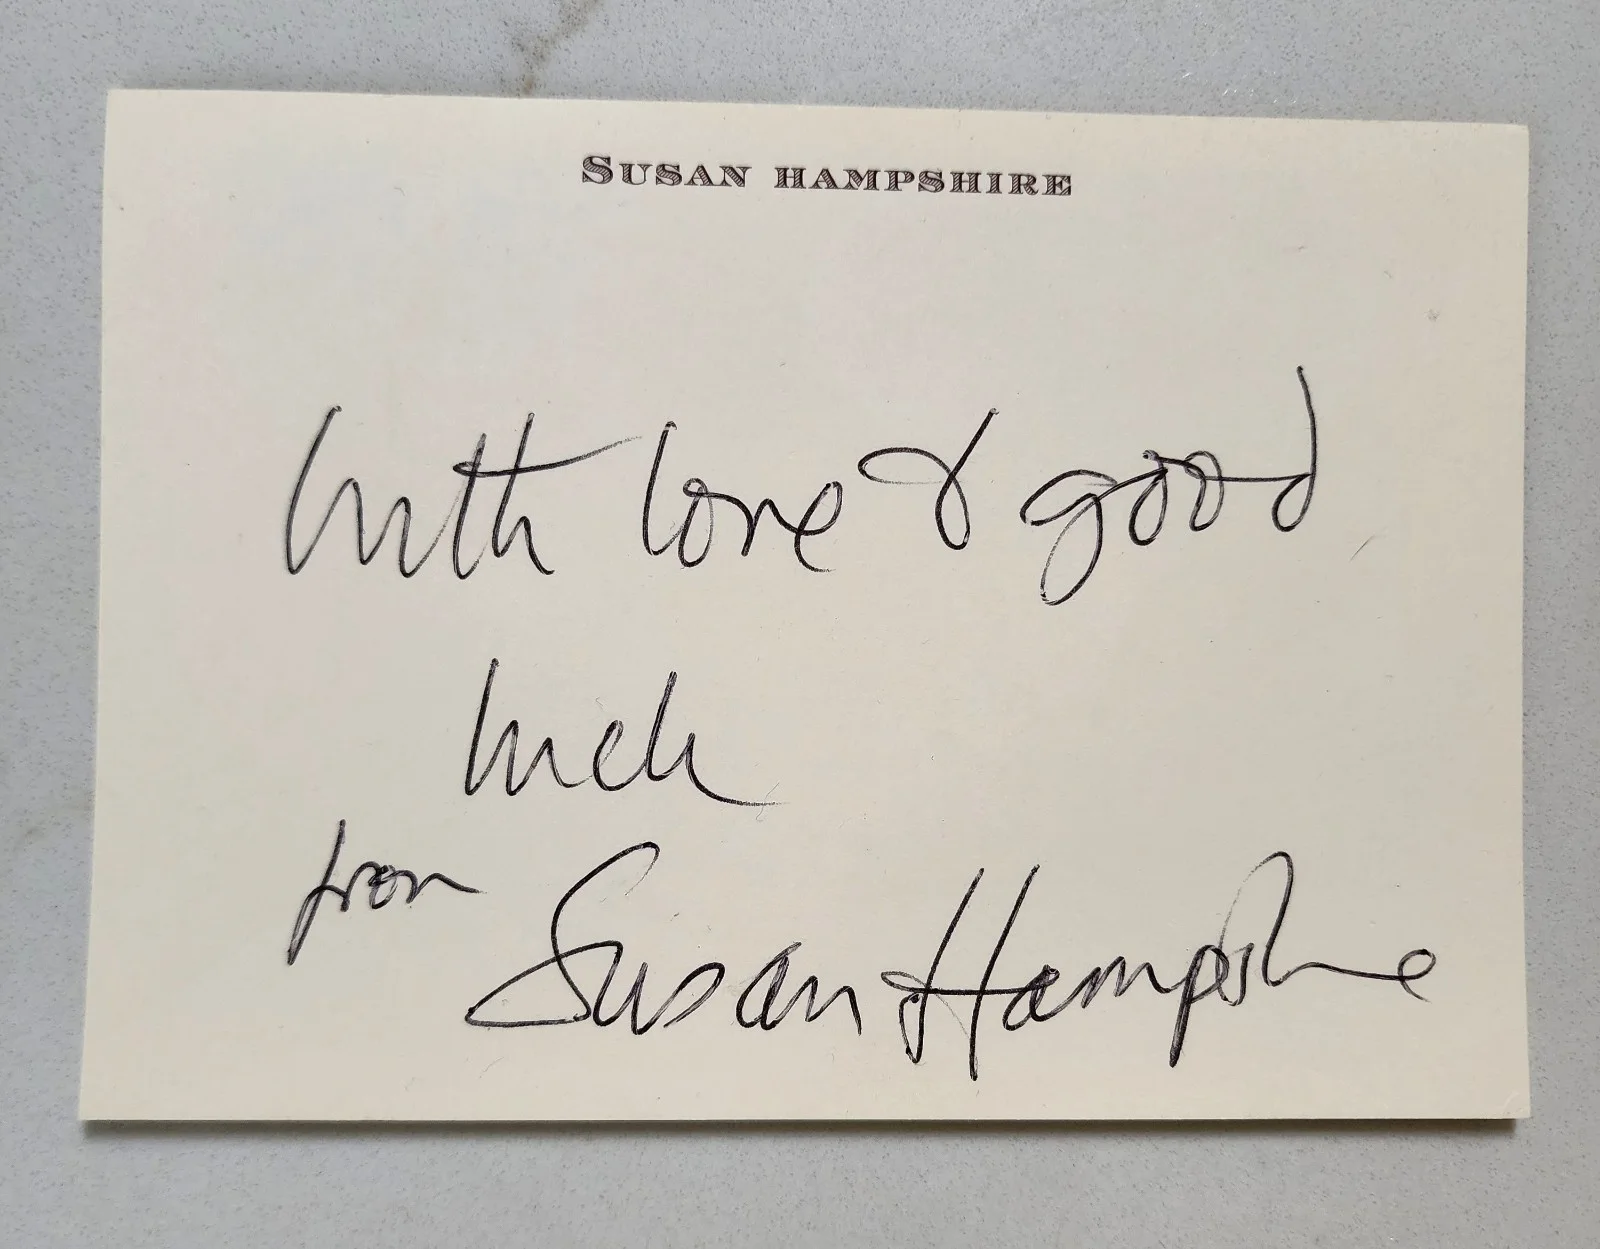 SUSAN HAMPSHIRE
With love & good
luck
from
Susan Hampshire